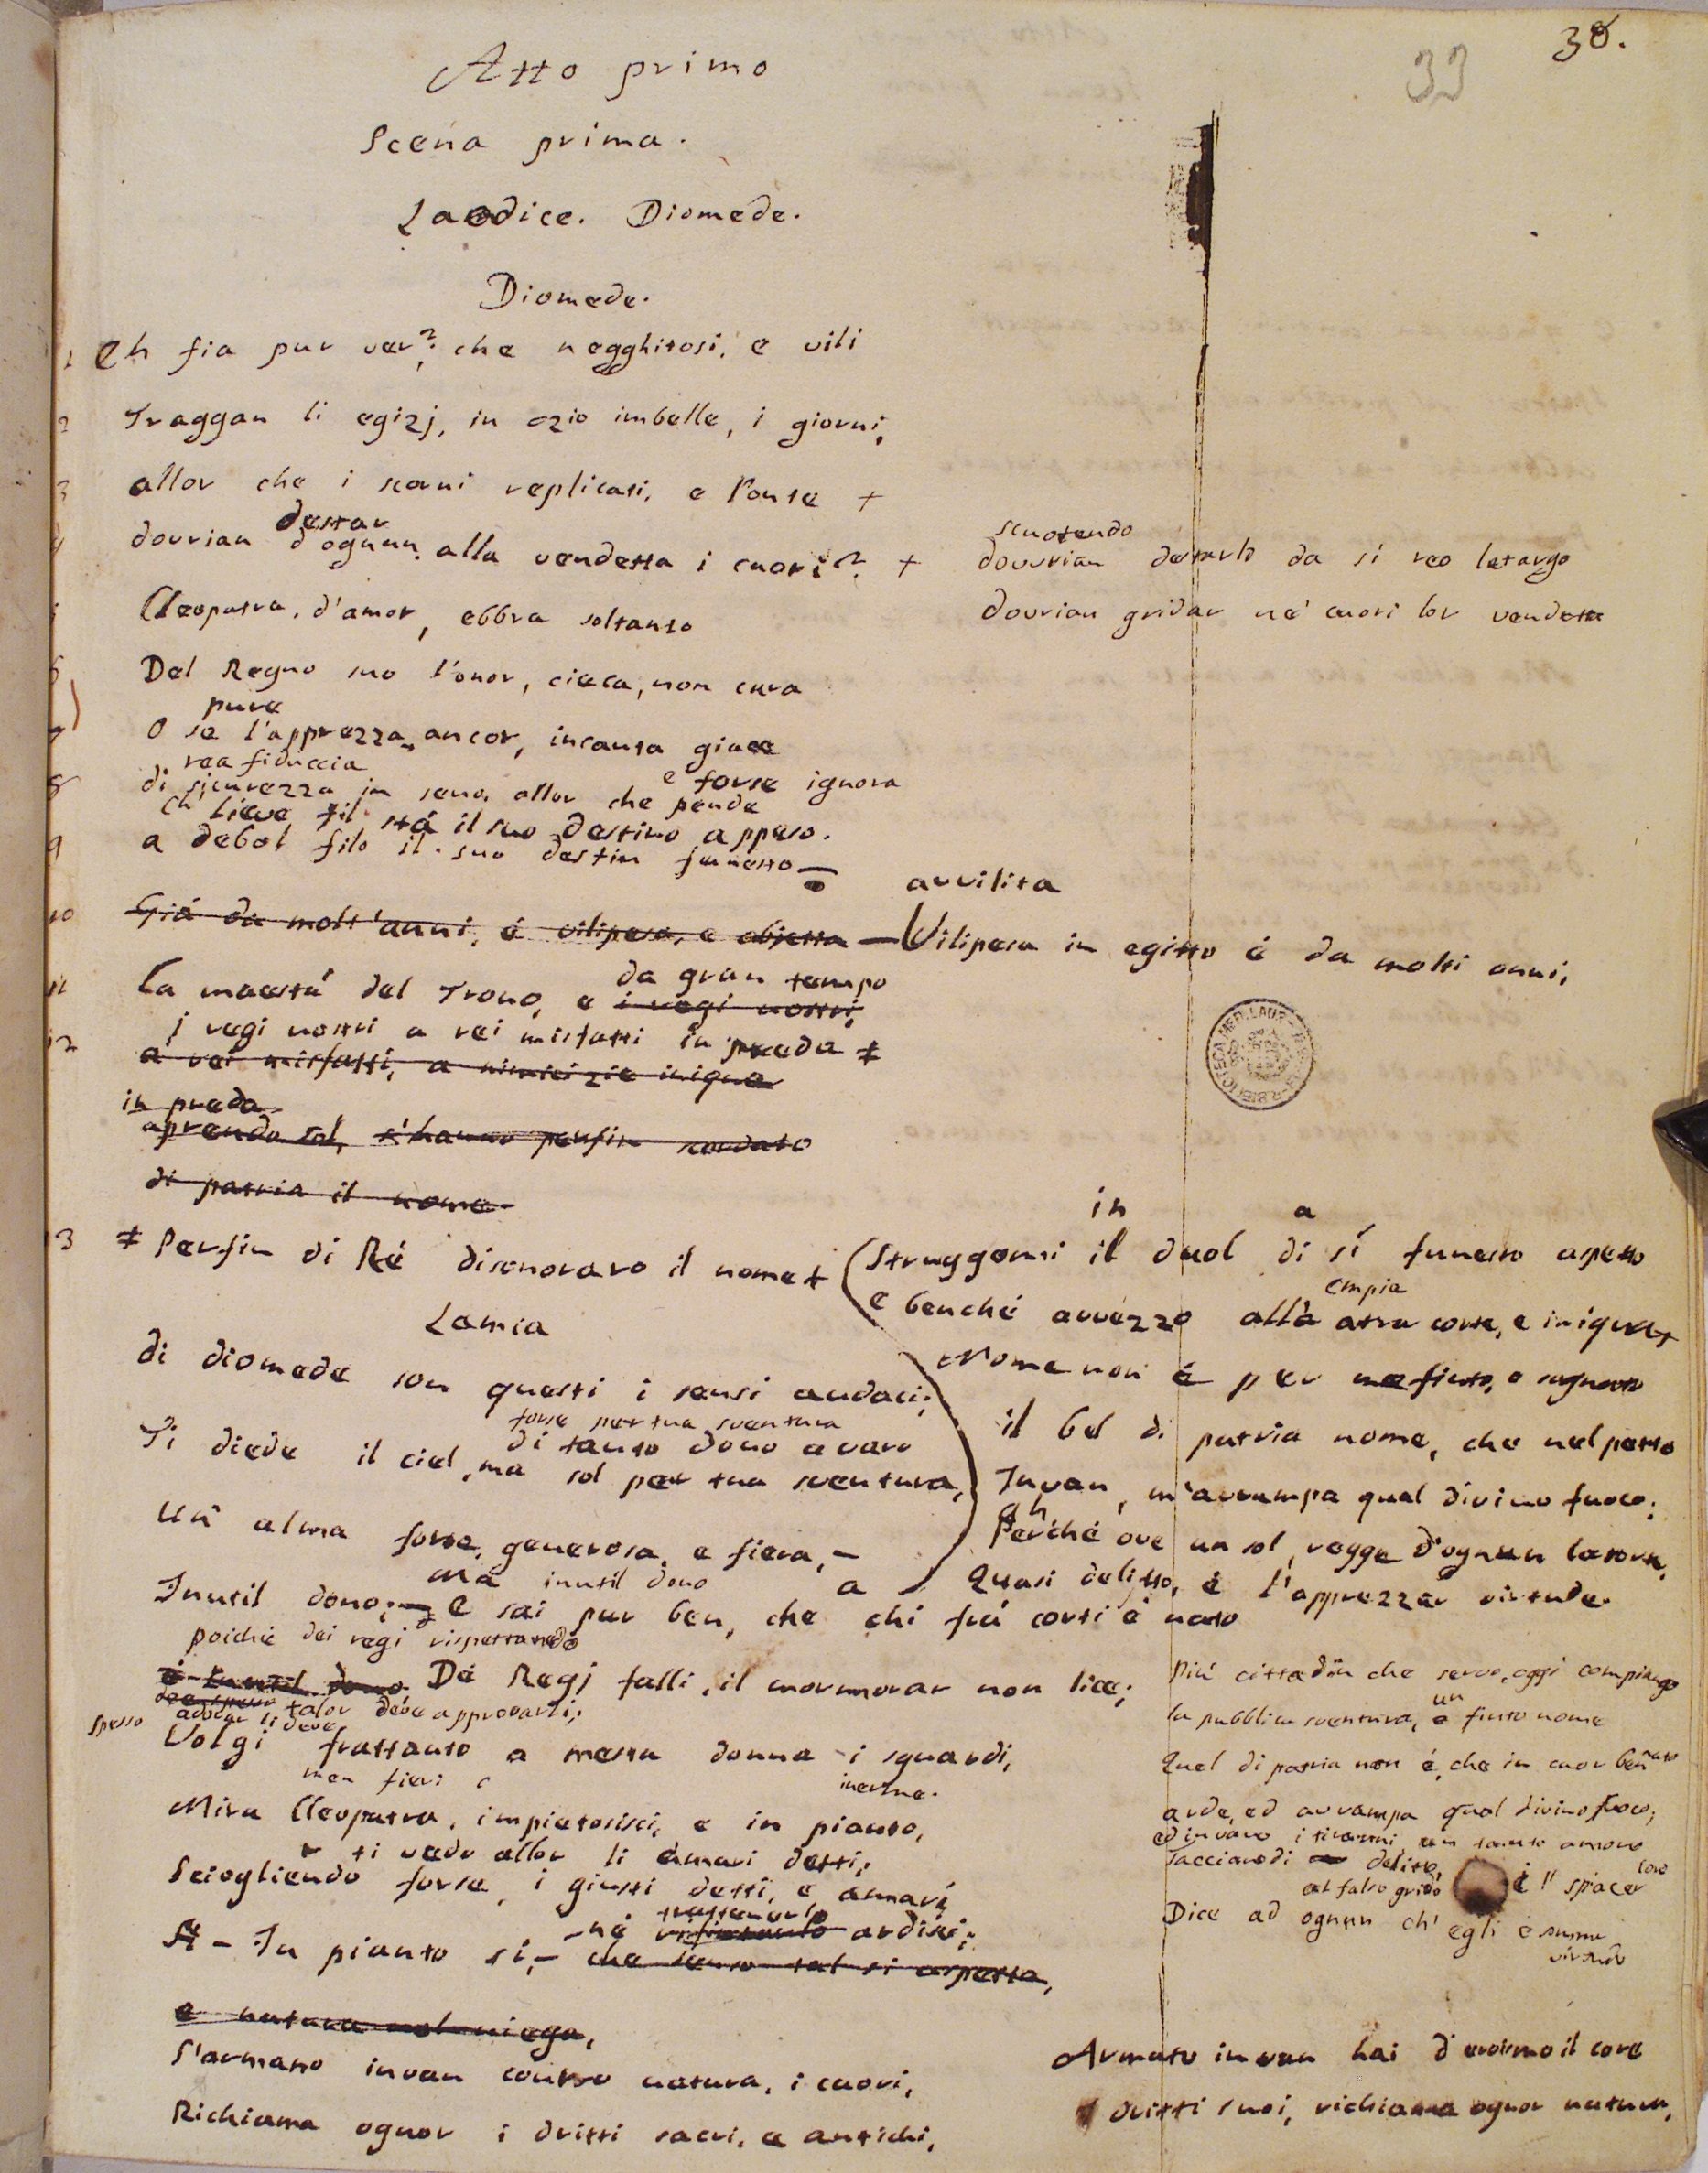 38.
33
Atto primo
Scena prima.
Laodice. Diomede.
Diomede.
1 Eh fia pur ver? che negghitosi, e vili
2 Traggan li egizj, in ozio imbelle, i giorni,
3 allor che i scorni replicati, e l'onte +
destar
4 dovrian d'ognun alla vendetta i cuori? +
scuotendo
dovvrian destarlo da sí reo letargo
dovrian gridar ne' cuori lor vendetta
Cleopatra, d'amor, ebbra soltanto
6 Del Regno suo l'onor, cieca, non cura
pure
7 O se l'apprezza ancor, incauta giace
rea fiduccia
e forse ignora
8 di sicurezza in seno, allor che pende
ch' lieve fil stá il suo destino appeso.
9 a debol filo il suo destin funesto
avvilita
10 Giá da molt'anni, é vilipesa, e abjetta — Vilipesa in egitto é da molti anni,
da gran tempo
11 la maestá del Trono, e i regi nostri,
i regi nostri a rei misfatti in preda ‡
12 a rei misfatti, a nimicizie inique
in preda
aprendo sol, s'hanno perfin scordato
di patria il nome
13 ‡ Perfin di Ré disonoraro il nome +
in a
(Struggomi il duol di sí funesto aspetto
empia
e benché avvezzo alla atra corte, e iniqua +
Nome non é per me finto, o sognato
il bel di patria nome, che nel petto
Invan, m'avvampa qual divino fuoco;
ah
Perché ove un sol, regge d'ognun la sorte,
Quasi delitto, é l'apprezzar virtude.
Lamia
di diomede son questi i sensi audaci;
forse per tua sventura
di tanto dono avaro
Ti diede il ciel, ma sol per tua sventura,
Un alma forse, generosa, e fiera, —
Ma inutil dono a
Inutil dono; — E sai pur ben, che chi frá corti é nato
poiché dei regi rispettando
é inutil dono Dé Regj falli, il mormorar non lice;
spesso adorar li deve talor deve approvarli;
Volgi frattanto a mesta donna i sguardi,
men fieri inerme.
Mira Cleopatra, impietosisci, e in pianto,
ti vedo allor li amari detti;
Sciogliendo forse, i giusti detti, e amari
trattenerlo
— In pianto sí, — né ardisci;
che tal si aspetta,
e natura nol niega,
S'armano invan contro natura, i cuori,
Richiama ognor i dritti sacri, e antichi,
Piú cittadin che servo, oggi compiango
la pubblica sventura, un finto nome
Quel di patria non é, che in cuor ben nato
arde, ed avvampa qual divino fuoco;
ed invano i tiranni un tanto amore
Taccian di delitto,
al falso grido é il spiacer loro
Dice ad ognun ch' egli é somma
virtude
Armato invan hai d'eroismo il core
i dritti suoi, richiama ognor natura,